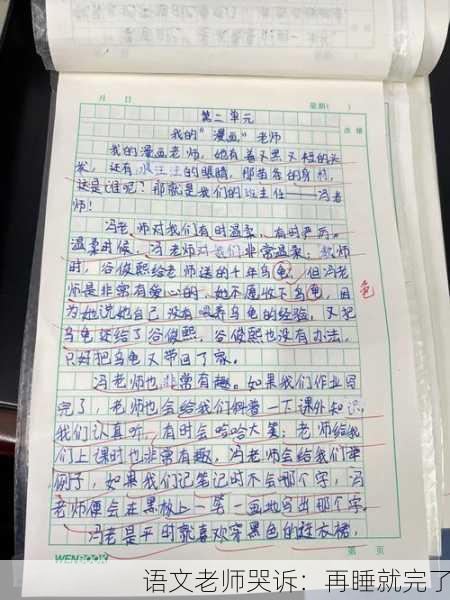 月 日 星期( )
第二单元 改错
我的"漫画"老师
我的漫画老师，她有着又黑又短的头
发，还有水汪汪的眼睛，那苗条的身材，
这是谁呢？那就是我们的班主任——冯老
师！
冯老师对我们有时温柔，有时严厉。
温柔时候，冯老师对我们非常温柔；教师
时，谷俊熙给老师送的千年乌龟，但冯老
师是非常有爱心的，她不愿收下乌龟，因 龟
为她说她自己没有喂养乌龟的经验，又把
乌龟还给了谷俊熙，谷俊熙也没有办法，
只好把乌龟又带回了家。
冯老师也非常有趣。如果我们作业写
完了，老师也会给我们科普一下课外知识，
我们认真听，有时会哈哈大笑；老师给我
们上课时也非常有趣，冯老师会给我们举
例子，如果我们记笔记时不会那个字，冯
老师便会在黑板上一笔一画地写出那个字。
冯老是平时就喜欢穿黑色的连衣裙，
WENBOOK 第 页
语文老师哭诉：再睡就完了